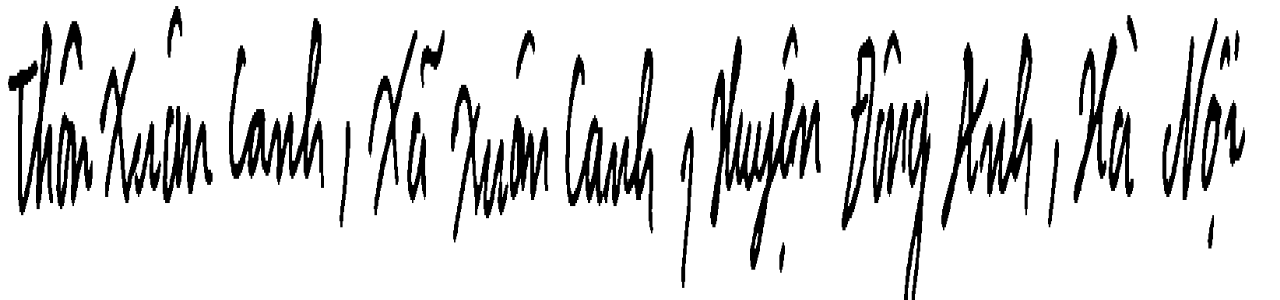 Thôn Xuân Canh, Xã Xuân Canh, Huyện Đông Anh, Hà Nội